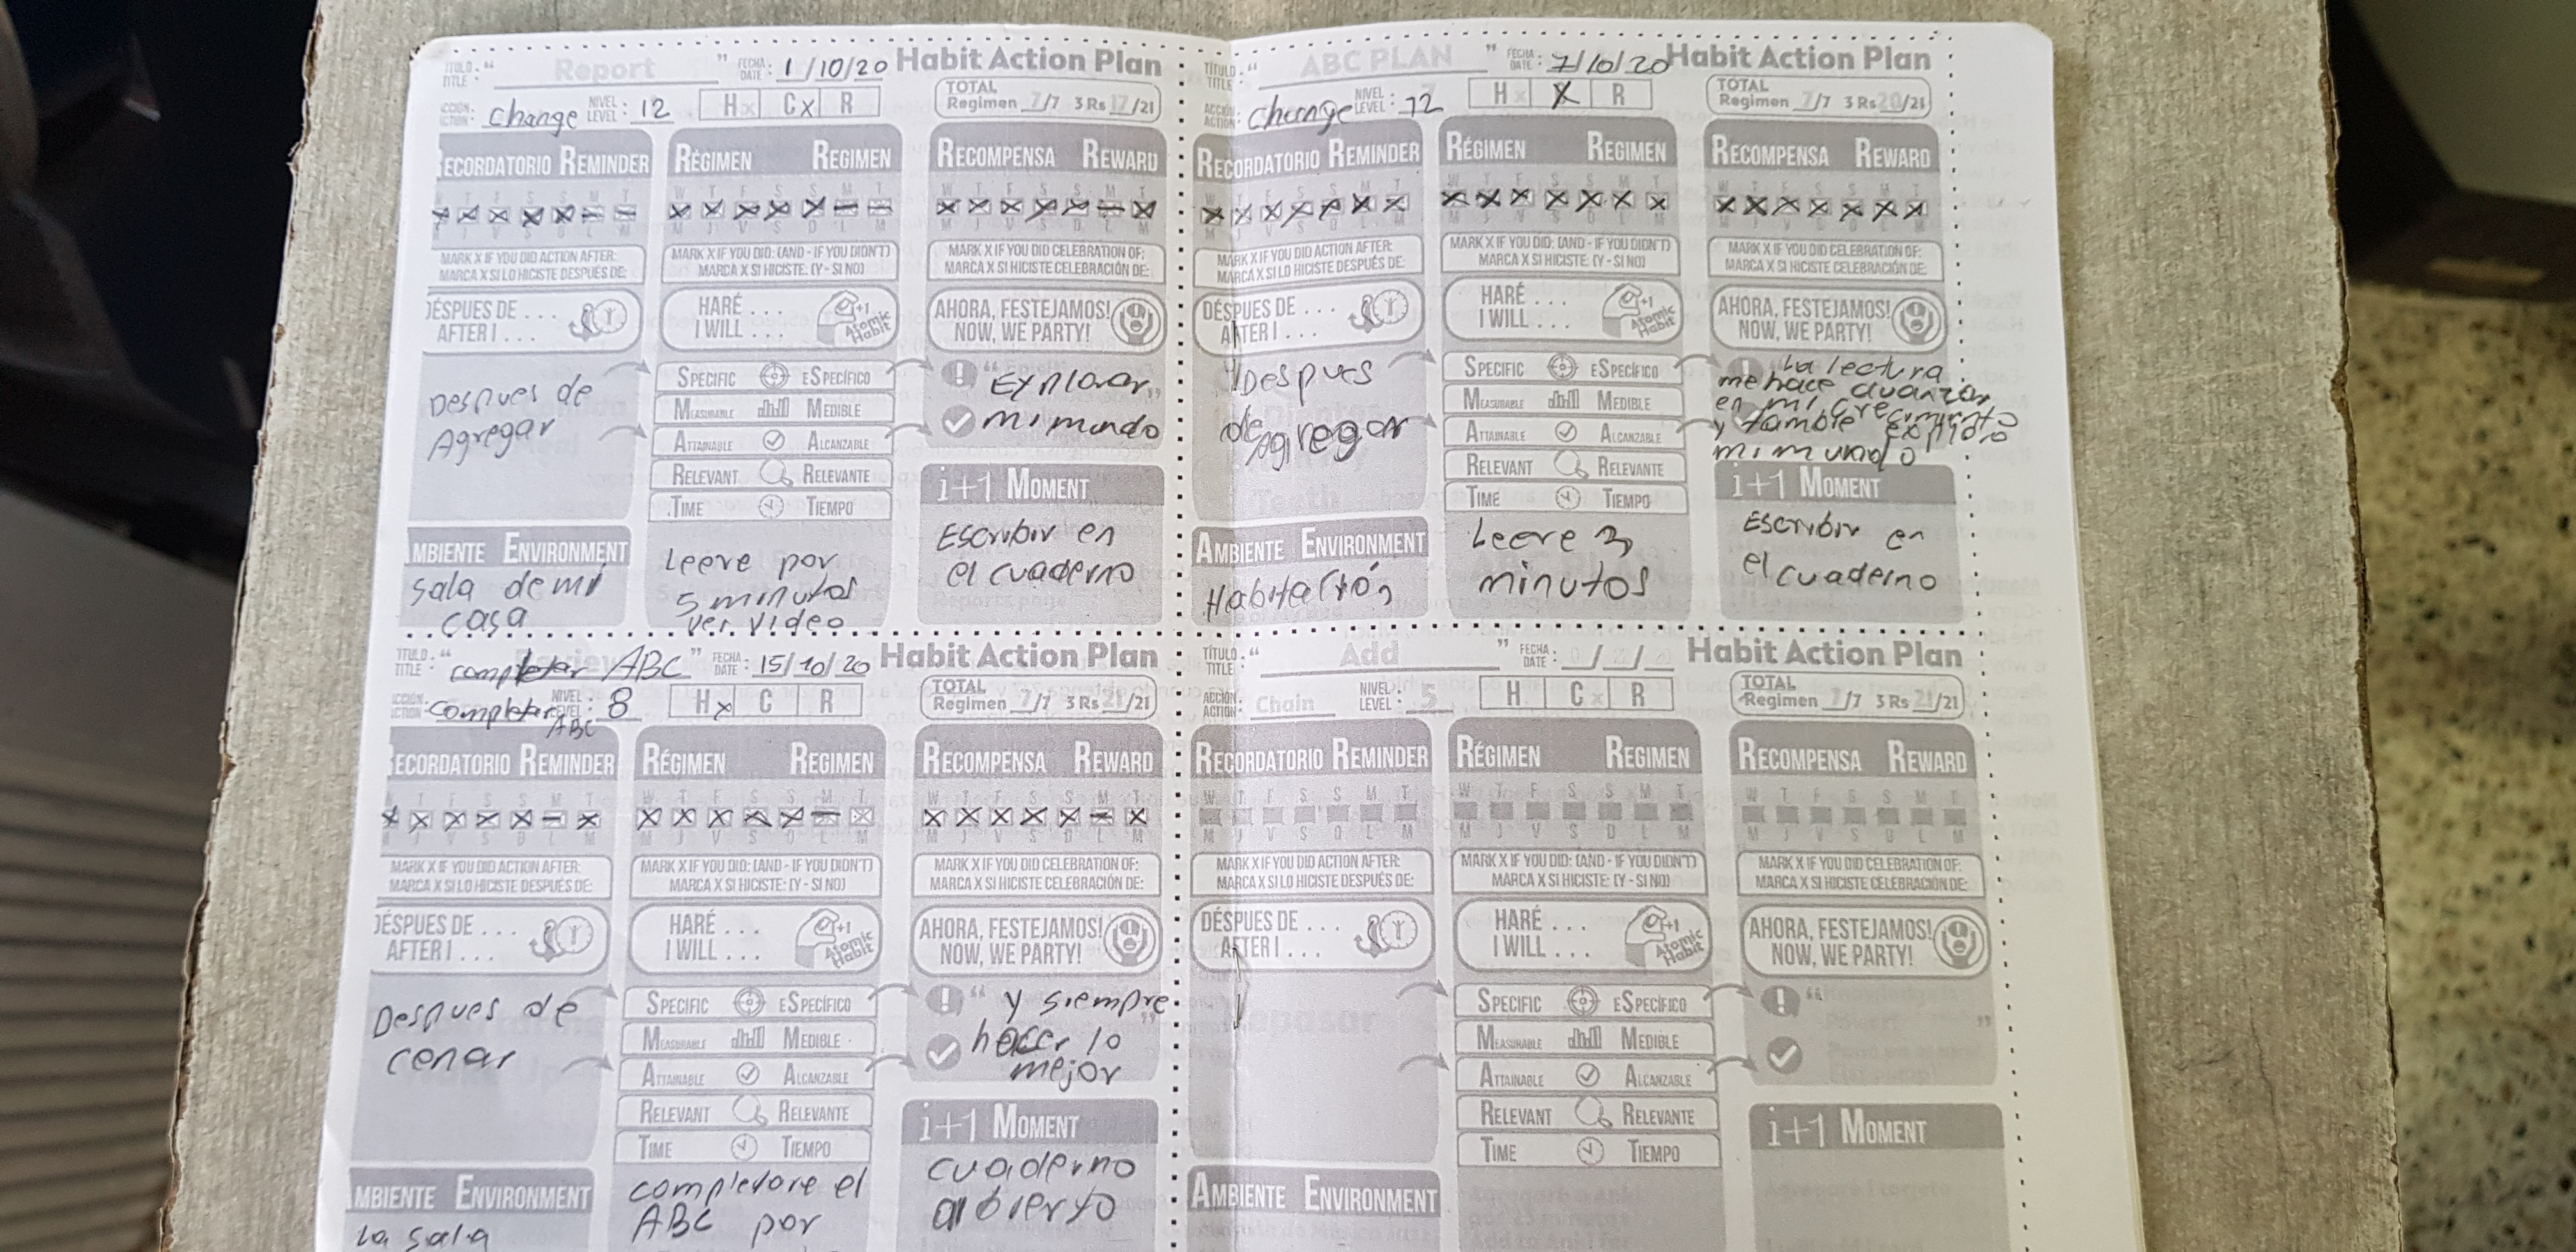 TÍTULO TITLE: " Report " FECHA DATE: 1/10/20 Habit Action Plan
change NIVEL LEVEL: 12 H x C x R TOTAL Regimen 7/7 3 Rs 17/21
RECORDATORIO REMINDER RÉGIMEN REGIMEN RECOMPENSA REWARD
W T F S S M T W T F S S M T
M J V S D L M M J V S D L M
MARK X IF YOU DID ACTION AFTER: MARK X IF YOU DID: (AND - IF YOU DIDN'T) MARK X IF YOU DID CELEBRATION OF:
MARCA X SI LO HICISTE DESPUÉS DE: MARCA X SI HICISTE: (Y - SI NO) MARCA X SI HICISTE CELEBRACIÓN DE:
DÉSPUES DE . . . HARÉ . . . +1 AHORA, FESTEJAMOS!
AFTER I . . . I WILL . . . Atomic Habit NOW, WE PARTY!
SPECIFIC ESPECÍFICO
MEASURABLE MEDIBLE
ATTAINABLE ALCANZABLE
RELEVANT RELEVANTE
TIME TIEMPO
Despues de
Agregar
"Explorar"
mi mundo
i+1 MOMENT
Escribir en
el cuaderno
AMBIENTE ENVIRONMENT
sala de mi
casa
Leere por
5 minutos
ver video
TÍTULO TITLE: " ABC PLAN " FECHA DATE: 7/10/20 Habit Action Plan
ACCIÓN ACTION: change NIVEL LEVEL: 12 H x X R TOTAL Regimen 7/7 3 Rs 20/21
RECORDATORIO REMINDER RÉGIMEN REGIMEN RECOMPENSA REWARD
W T F S S M T
M J V S D L M
MARK X IF YOU DID ACTION AFTER: MARK X IF YOU DID: (AND - IF YOU DIDN'T) MARK X IF YOU DID CELEBRATION OF:
MARCA X SI LO HICISTE DESPUÉS DE: MARCA X SI HICISTE: (Y - SI NO) MARCA X SI HICISTE CELEBRACIÓN DE:
DÉSPUES DE . . . HARÉ . . . +1 AHORA, FESTEJAMOS!
AFTER I . . . I WILL . . . Atomic Habit NOW, WE PARTY!
SPECIFIC ESPECÍFICO
MEASURABLE MEDIBLE
ATTAINABLE ALCANZABLE
RELEVANT RELEVANTE
TIME TIEMPO
Despues
de
Agregar
La lectura
me hace avanzar
en mi crecimiento
y tambie exploro
mi mundo
i+1 MOMENT
Escribir en
el cuaderno
AMBIENTE ENVIRONMENT
Habitación
Leere 3
minutos
TÍTULO TITLE: " completar ABC " FECHA DATE: 15/10/20 Habit Action Plan
completar ABC NIVEL 8 H x C R TOTAL Regimen 7/7 3 Rs 21/21
RECORDATORIO REMINDER RÉGIMEN REGIMEN RECOMPENSA REWARD
W T F S S M T W T F S S M T
M J V S D L M M J V S D L M
MARK X IF YOU DID ACTION AFTER: MARK X IF YOU DID: (AND - IF YOU DIDN'T) MARK X IF YOU DID CELEBRATION OF:
MARCA X SI LO HICISTE DESPUÉS DE: MARCA X SI HICISTE: (Y - SI NO) MARCA X SI HICISTE CELEBRACIÓN DE:
DÉSPUES DE . . . HARÉ . . . +1 AHORA, FESTEJAMOS!
AFTER I . . . I WILL . . . Atomic Habit NOW, WE PARTY!
SPECIFIC ESPECÍFICO
MEASURABLE MEDIBLE
ATTAINABLE ALCANZABLE
RELEVANT RELEVANTE
TIME TIEMPO
Despues de
cenar
"y siempre
hacer lo"
mejor
i+1 MOMENT
cuaderno
abierto
AMBIENTE ENVIRONMENT
la sala
completare el
ABC por
TÍTULO TITLE: " Add " FECHA DATE: / / Habit Action Plan
ACCIÓN ACTION: Chain NIVEL LEVEL: 5 H C x R TOTAL Regimen 7/7 3 Rs 21/21
RECORDATORIO REMINDER RÉGIMEN REGIMEN RECOMPENSA REWARD
W T F S S M T W T F S S M T W T F S S M T
M J V S D L M M J V S D L M M J V S D L M
MARK X IF YOU DID ACTION AFTER: MARK X IF YOU DID: (AND - IF YOU DIDN'T) MARK X IF YOU DID CELEBRATION OF:
MARCA X SI LO HICISTE DESPUÉS DE: MARCA X SI HICISTE: (Y - SI NO) MARCA X SI HICISTE CELEBRACIÓN DE:
DÉSPUES DE . . . HARÉ . . . +1 AHORA, FESTEJAMOS!
AFTER I . . . I WILL . . . Atomic Habit NOW, WE PARTY!
SPECIFIC ESPECÍFICO
MEASURABLE MEDIBLE
ATTAINABLE ALCANZABLE
RELEVANT RELEVANTE
TIME TIEMPO
i+1 MOMENT
AMBIENTE ENVIRONMENT